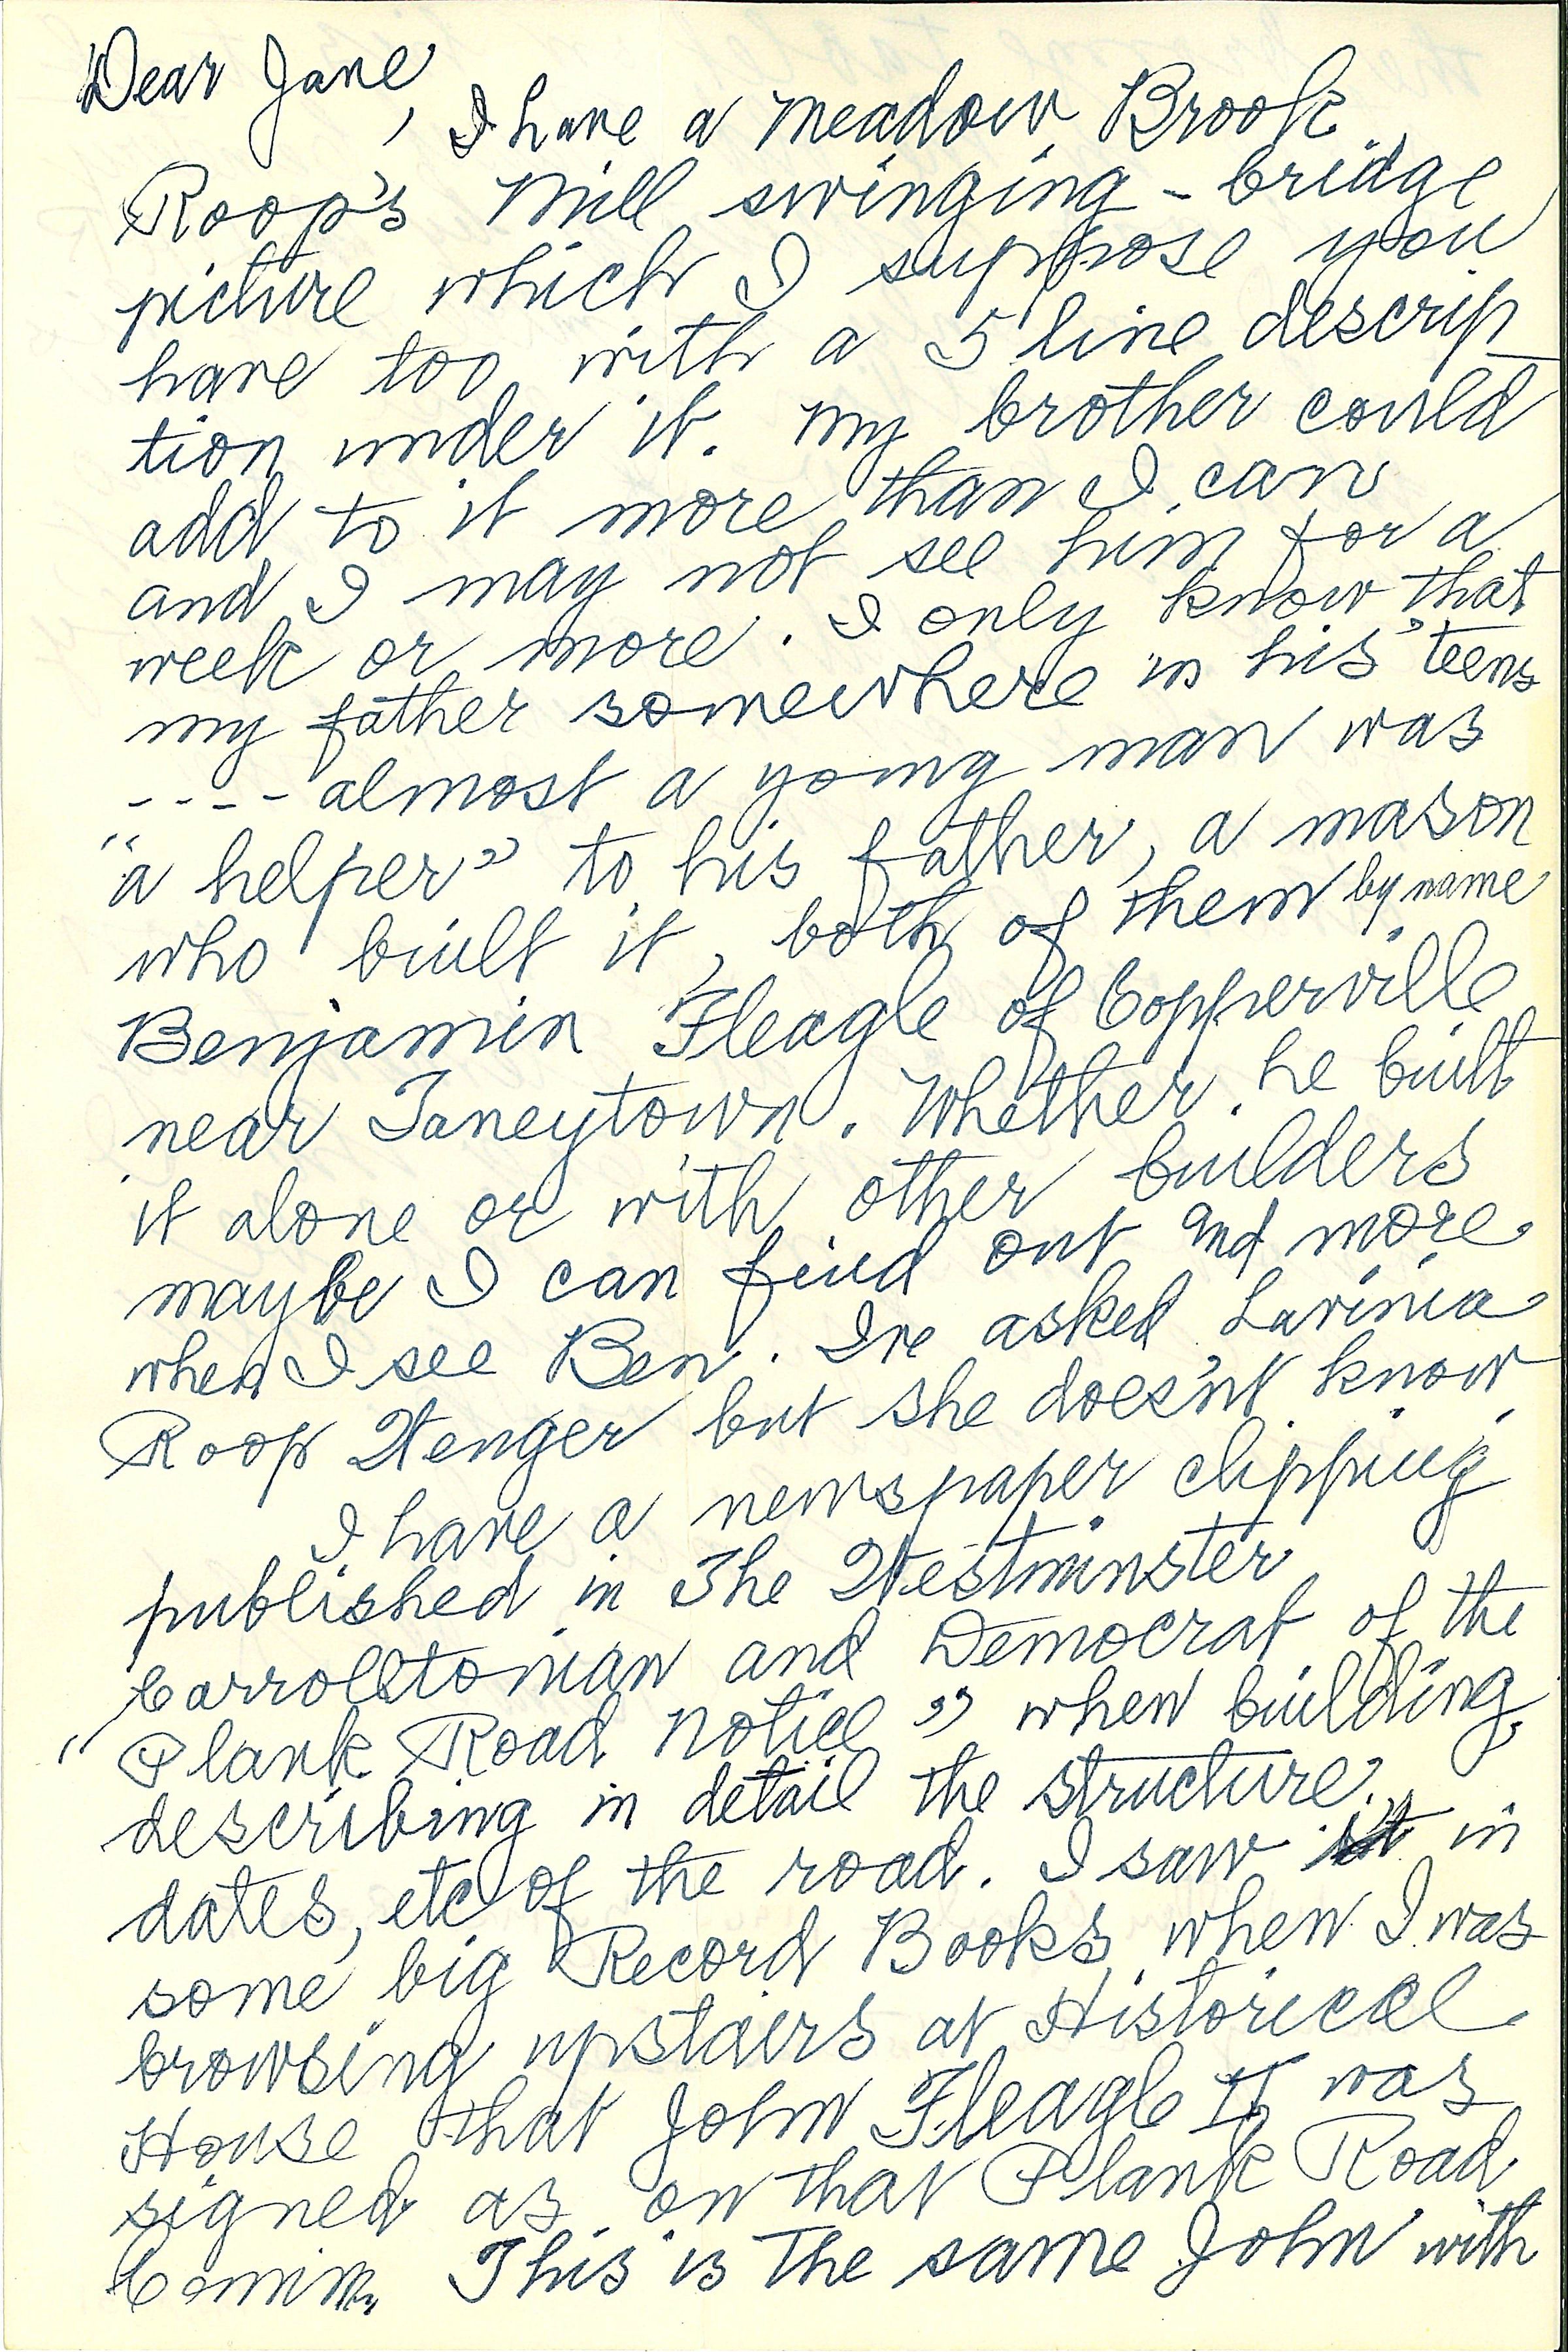 Dear Jane,
I have a Meadow Brook
Roop's Mill swinging - bridge
picture which I suppose you
have too with a 5 line descrip_
tion under it. My brother could
add to it more than I can
and I may not see him for a
week or more. I only know that
my father somewhere in his 'teens
---- almost a young man was
"a helper" to his father, a mason
who built it, both of them by name
Benjamin Fleagle of Copperville
near Taneytown. Whether he built
it alone or with other builders
maybe I can find out and more
when I see Ben. I've asked Lavinia
Roop Wenger but she does'nt know.
I have a newspaper clipping
published in The Westminster
Carrolltonian and Democrat of the
"Plank Road Notice" when building,
describing in detail the structure,
dates, etc of the road. I saw in
some big Record Books when I was
browsing upstairs at Historical
House that John Fleagle II was
signed as on that Plank Road
Comm. This is the same John with